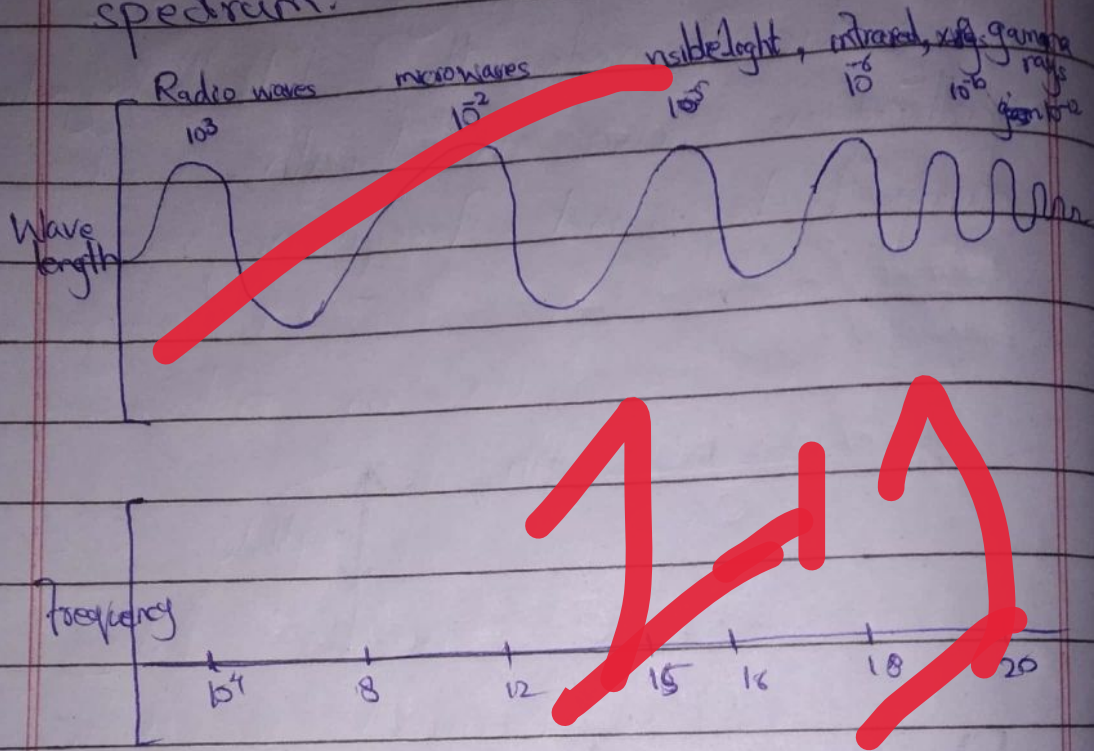 spectrum.
Radio waves microwaves visible light, infrared, x-rays, gamma rays
10³ 10⁻² 10⁻⁵ 10⁻⁶ 10⁻¹⁰
Wave length
frequency
10⁴ 8 12 15 16 18 20